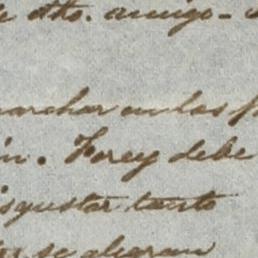 e Atto. amigo-
marchar en las f
n. Forey debe
isgustar tanto
se alegran